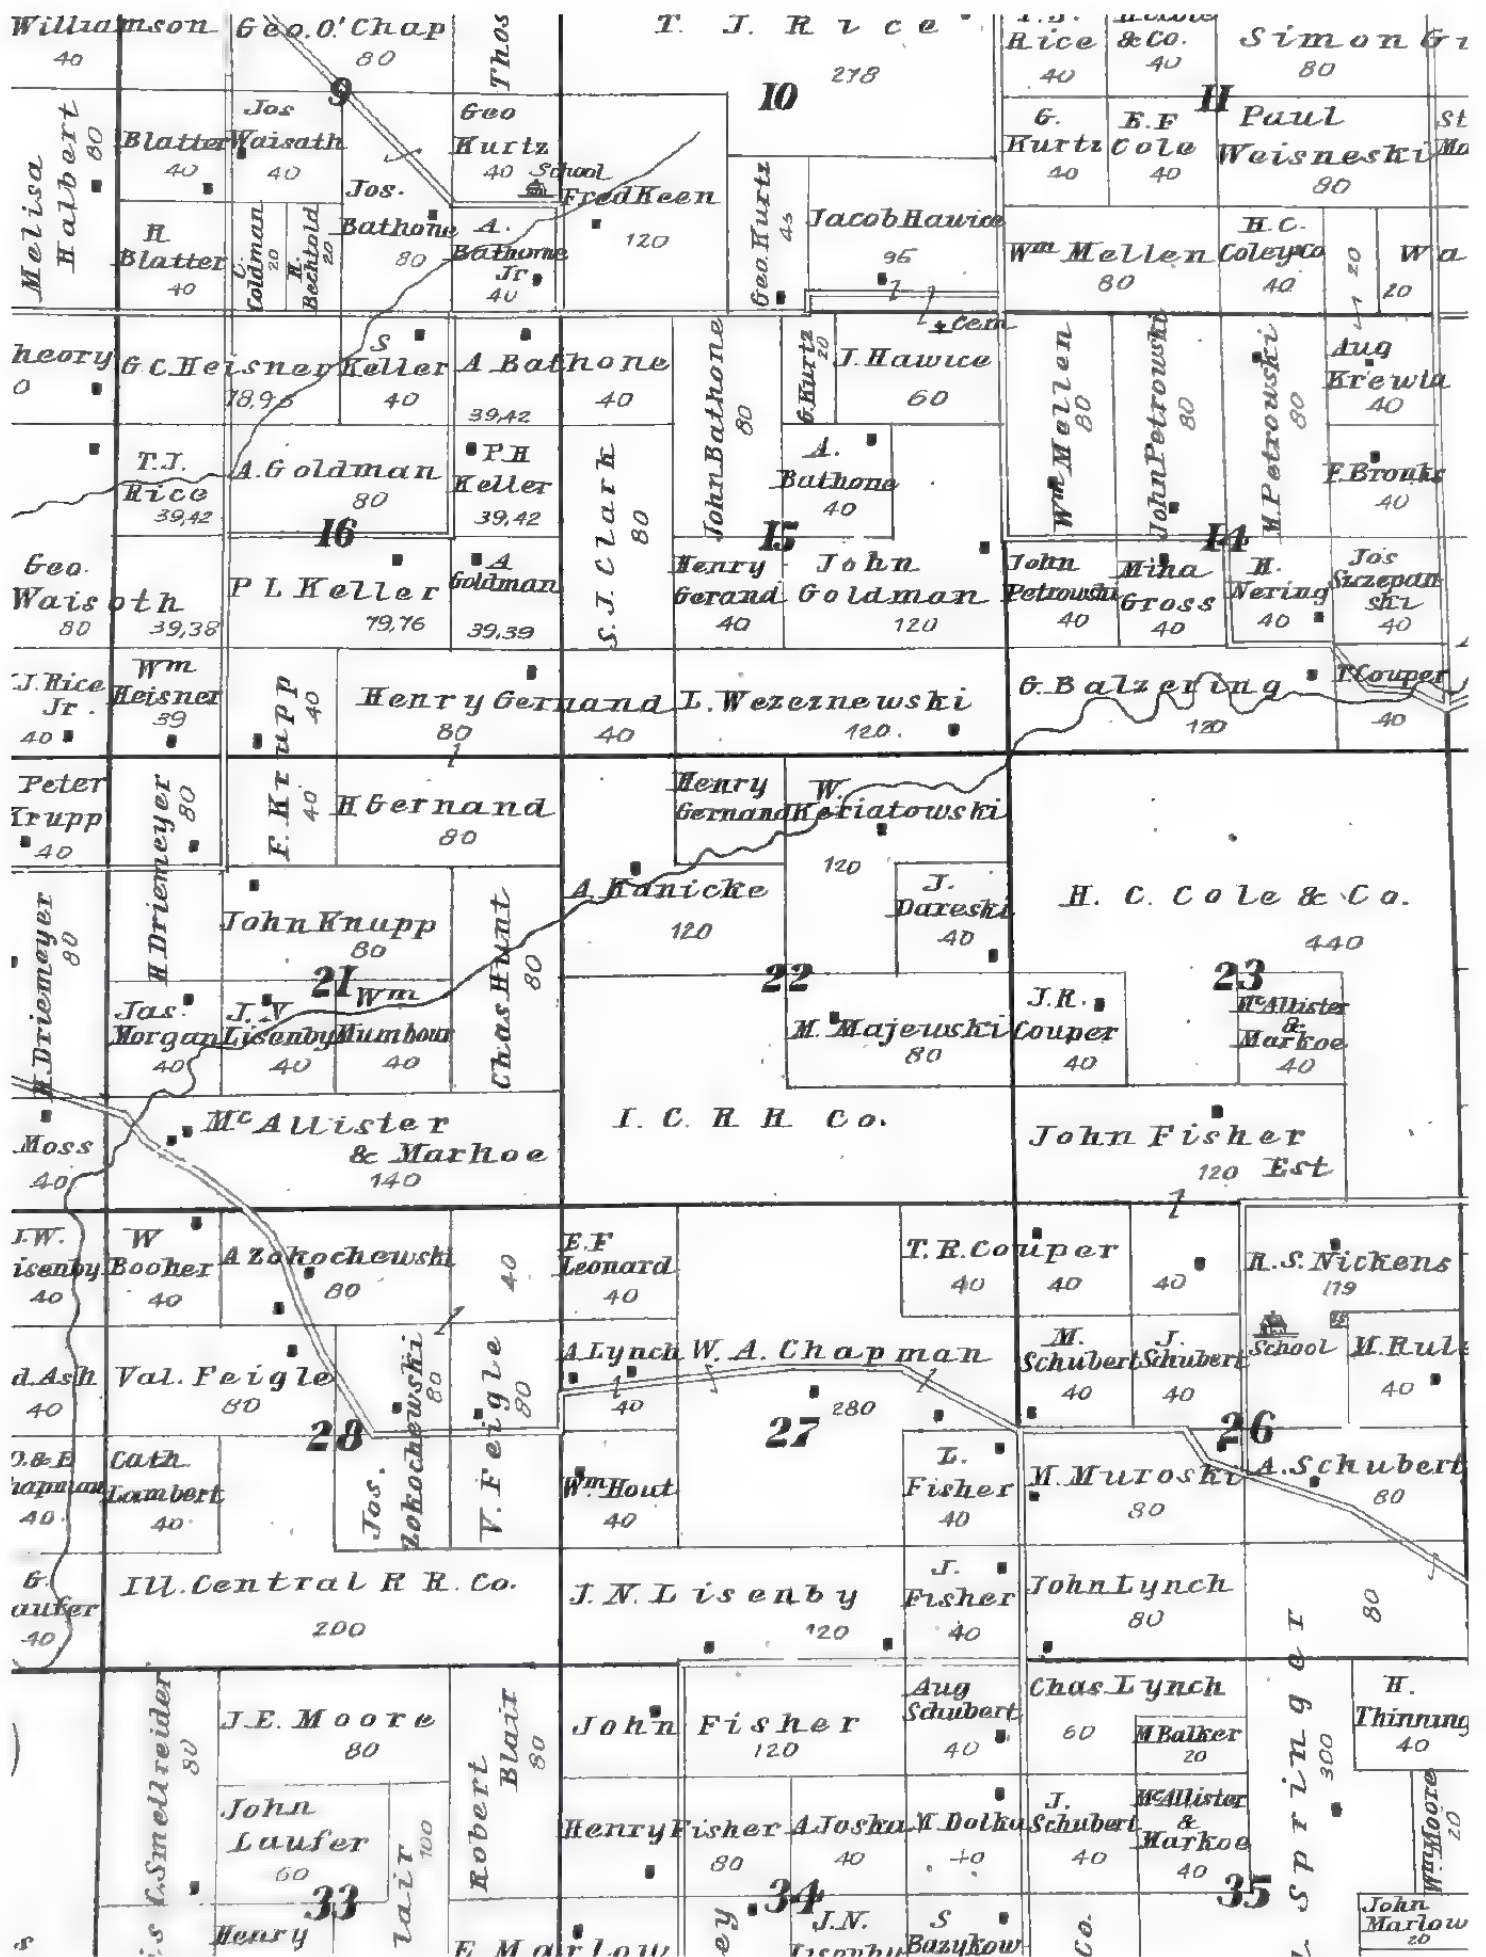 Williamson
40
Geo. O. Chap
80
Thos
T. J. Rice
278
Rice
40
& Co.
40
Simon
80
9
10
11
Melisa Halbert
80
Blatter
40
Jos
Waisath
40
Jos.
Bathone
80
Geo
Kurtz
40
School
Fred Keen
120
Geo. Kurtz
45
Jacob Hawice
95
G.
Kurtz
40
E. F
Cole
40
Paul
Weisneski
80
St
H
Blatter
40
C. Goldman
20
H. Bechtold
20
A.
Bathone
Jr
40
Wm Mellen
80
H. C.
Cole & Co
40
20
Wa
20
Cem
heory
0
G C. Heisner
S
Keller
40
A Bathone
39,42
40
John Bathone
80
G. Kurtz
20
J. Hawice
60
Wm Mellen
80
John Petrowski
80
M. Petrowski
80
Aug
40
T. J.
Rice
39,42
A. Goldman
80
P H
Keller
39,42
S. J. Clark
80
A.
Bathone
40
F. Brouks
40
16
15
14
Geo.
Waisoth
80
39,38
P L Keller
79,76
A
Goldman
39,39
Henry
Gerand
40
John
Goldman
120
John
Petrowski
40
Mina
Gross
40
H.
Nering
40
Jos
Szczepan
ski
40
J. Rice
Jr.
40
Wm
Heisner
39
F. Krupp
40
40
Henry Gernand
80
40
L. Wezeznewski
120.
G. Balzering
120
T. Couper
40
Peter
Krupp
40
H Driemeyer
80
H Gernand
80
Henry
Gernand
W.
Keriatowski
120
H. C. Cole & Co.
440
H. Driemeyer
80
John Knupp
80
Chas Hunt
80
A Kanicke
120
J.
Dareski
40
21
22
23
Jas.
Morgan
40
J. V
Lisenby
40
Wm
Mumbour
40
M. Majewski
80
J. R.
Couper
40
McAllister
&
Markoe
40
Moss
40
McAllister
& Markoe
140
I. C. R R Co.
John Fisher
120 Est
J. W.
isenby
40
W
Booher
40
A Zokochewski
80
40
E. F
Leonard
40
T. R. Couper
40
40
40
R. S. Nickens
119
d. Ash
40
Val. Feigle
80
Jos. Zokochewski
80
V. Feigle
80
A Lynch
40
W. A. Chapman
280
M.
Schubert
40
J.
Schubert
40
School
M. Rule
40
28
27
26
O. & E
hapman
40
Cath.
Lambert
40
Wm. Hout
40
L.
Fisher
40
M. Muroski
80
A. Schubert
80
G.
aufer
40
Ill. Central R R. Co.
200
J. N. Lisenby
120
J.
Fisher
40
John Lynch
80
80
C. Smellreider
80
J. E. Moore
80
Robert Blair
80
John Fisher
120
Aug
Schubert
40
Chas. Lynch
60
M Balker
20
Springer
300
H.
Thinning
40
John
Laufer
60
lair
100
Henry Fisher
80
A Joska
40
M Dolka
40
J.
Schubert
40
McAllister
&
Markoe
40
Wm Moore
20
33
34
35
s
Henry
F Marlow
ey
J. N.
Lisenby
S
Bazykow
Co.
John
Marlow
20